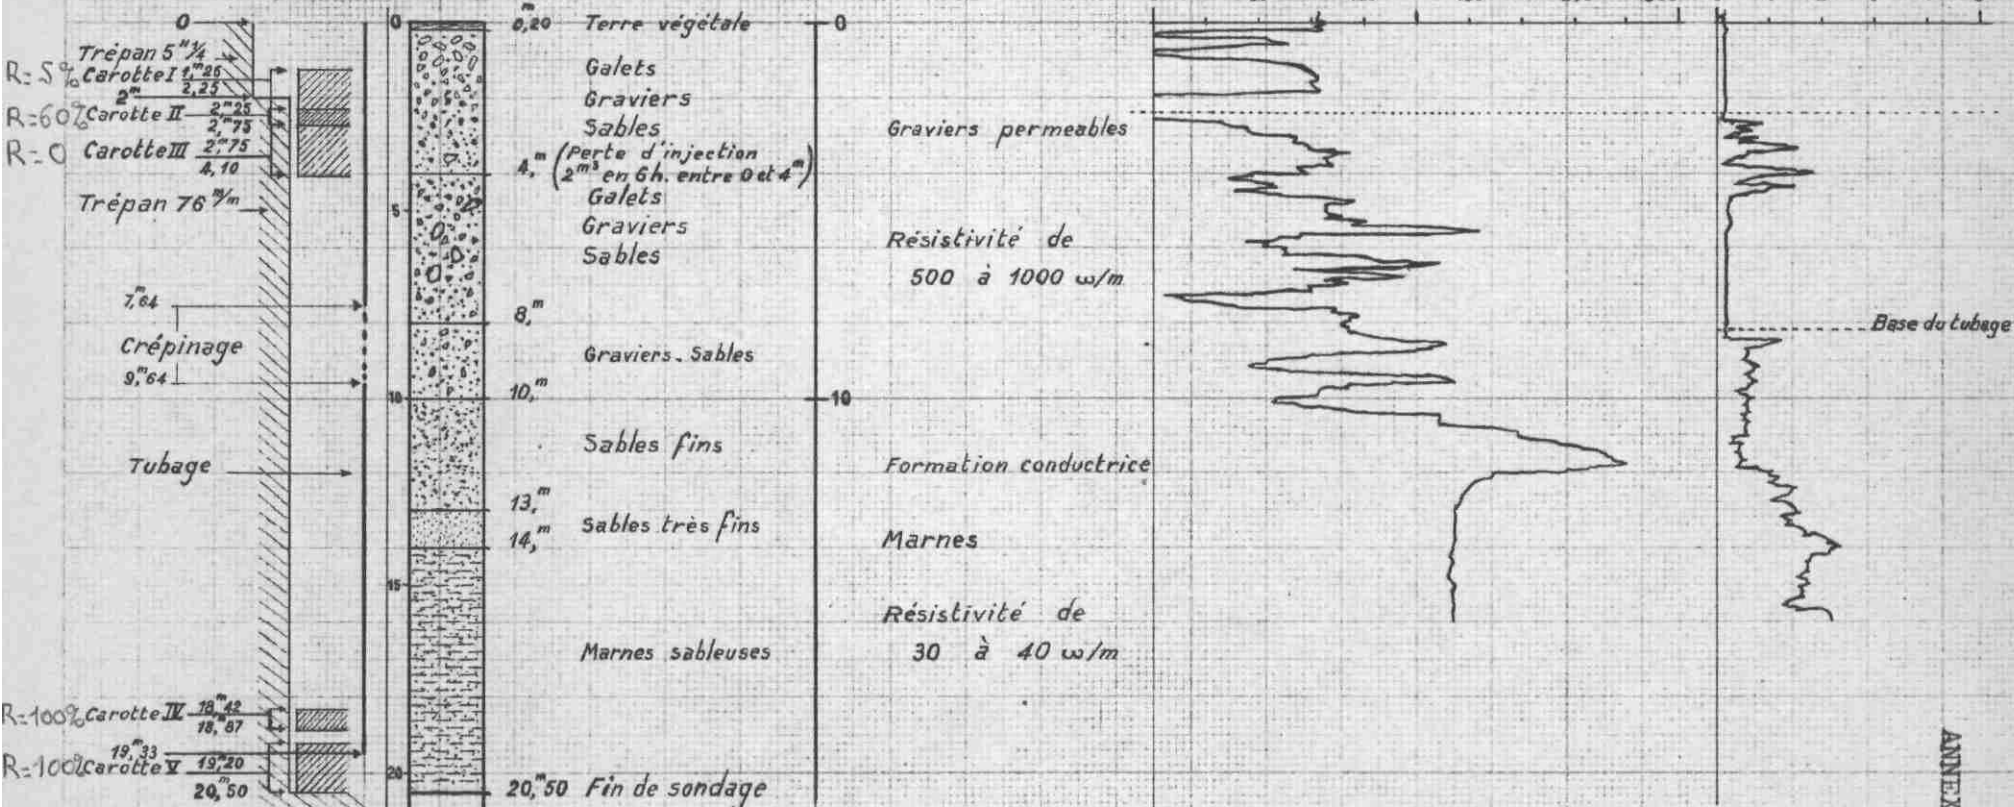 0
Trépan 5"¼
R=5% Carotte I 1,m25
2,25
2m
R=60% Carotte II 2,m25
2,m75
R=0 Carotte III 2,m75
4,10
Trépan 76 m/m
7,m64
Crépinage
9,m64
Tubage
R=100% Carotte IV 18,m42
18,m87
19,m33
R=100% Carotte V 19,m20
20,m50
0
5
10
15
20
0,m20 Terre végétale
Galets
Graviers
Sables
4,m (Perte d'injection
2m³ en 6h. entre 0 et 4m)
Galets
Graviers
Sables
8,m
Graviers. Sables
10,m
Sables fins
13,m
Sables très fins
14,m
Marnes sableuses
20,m50 Fin de sondage
0
10
Graviers permeables
Résistivité de
500 à 1000 ω/m
Formation conductrice
Marnes
Résistivité de
30 à 40 ω/m
Base du tubage